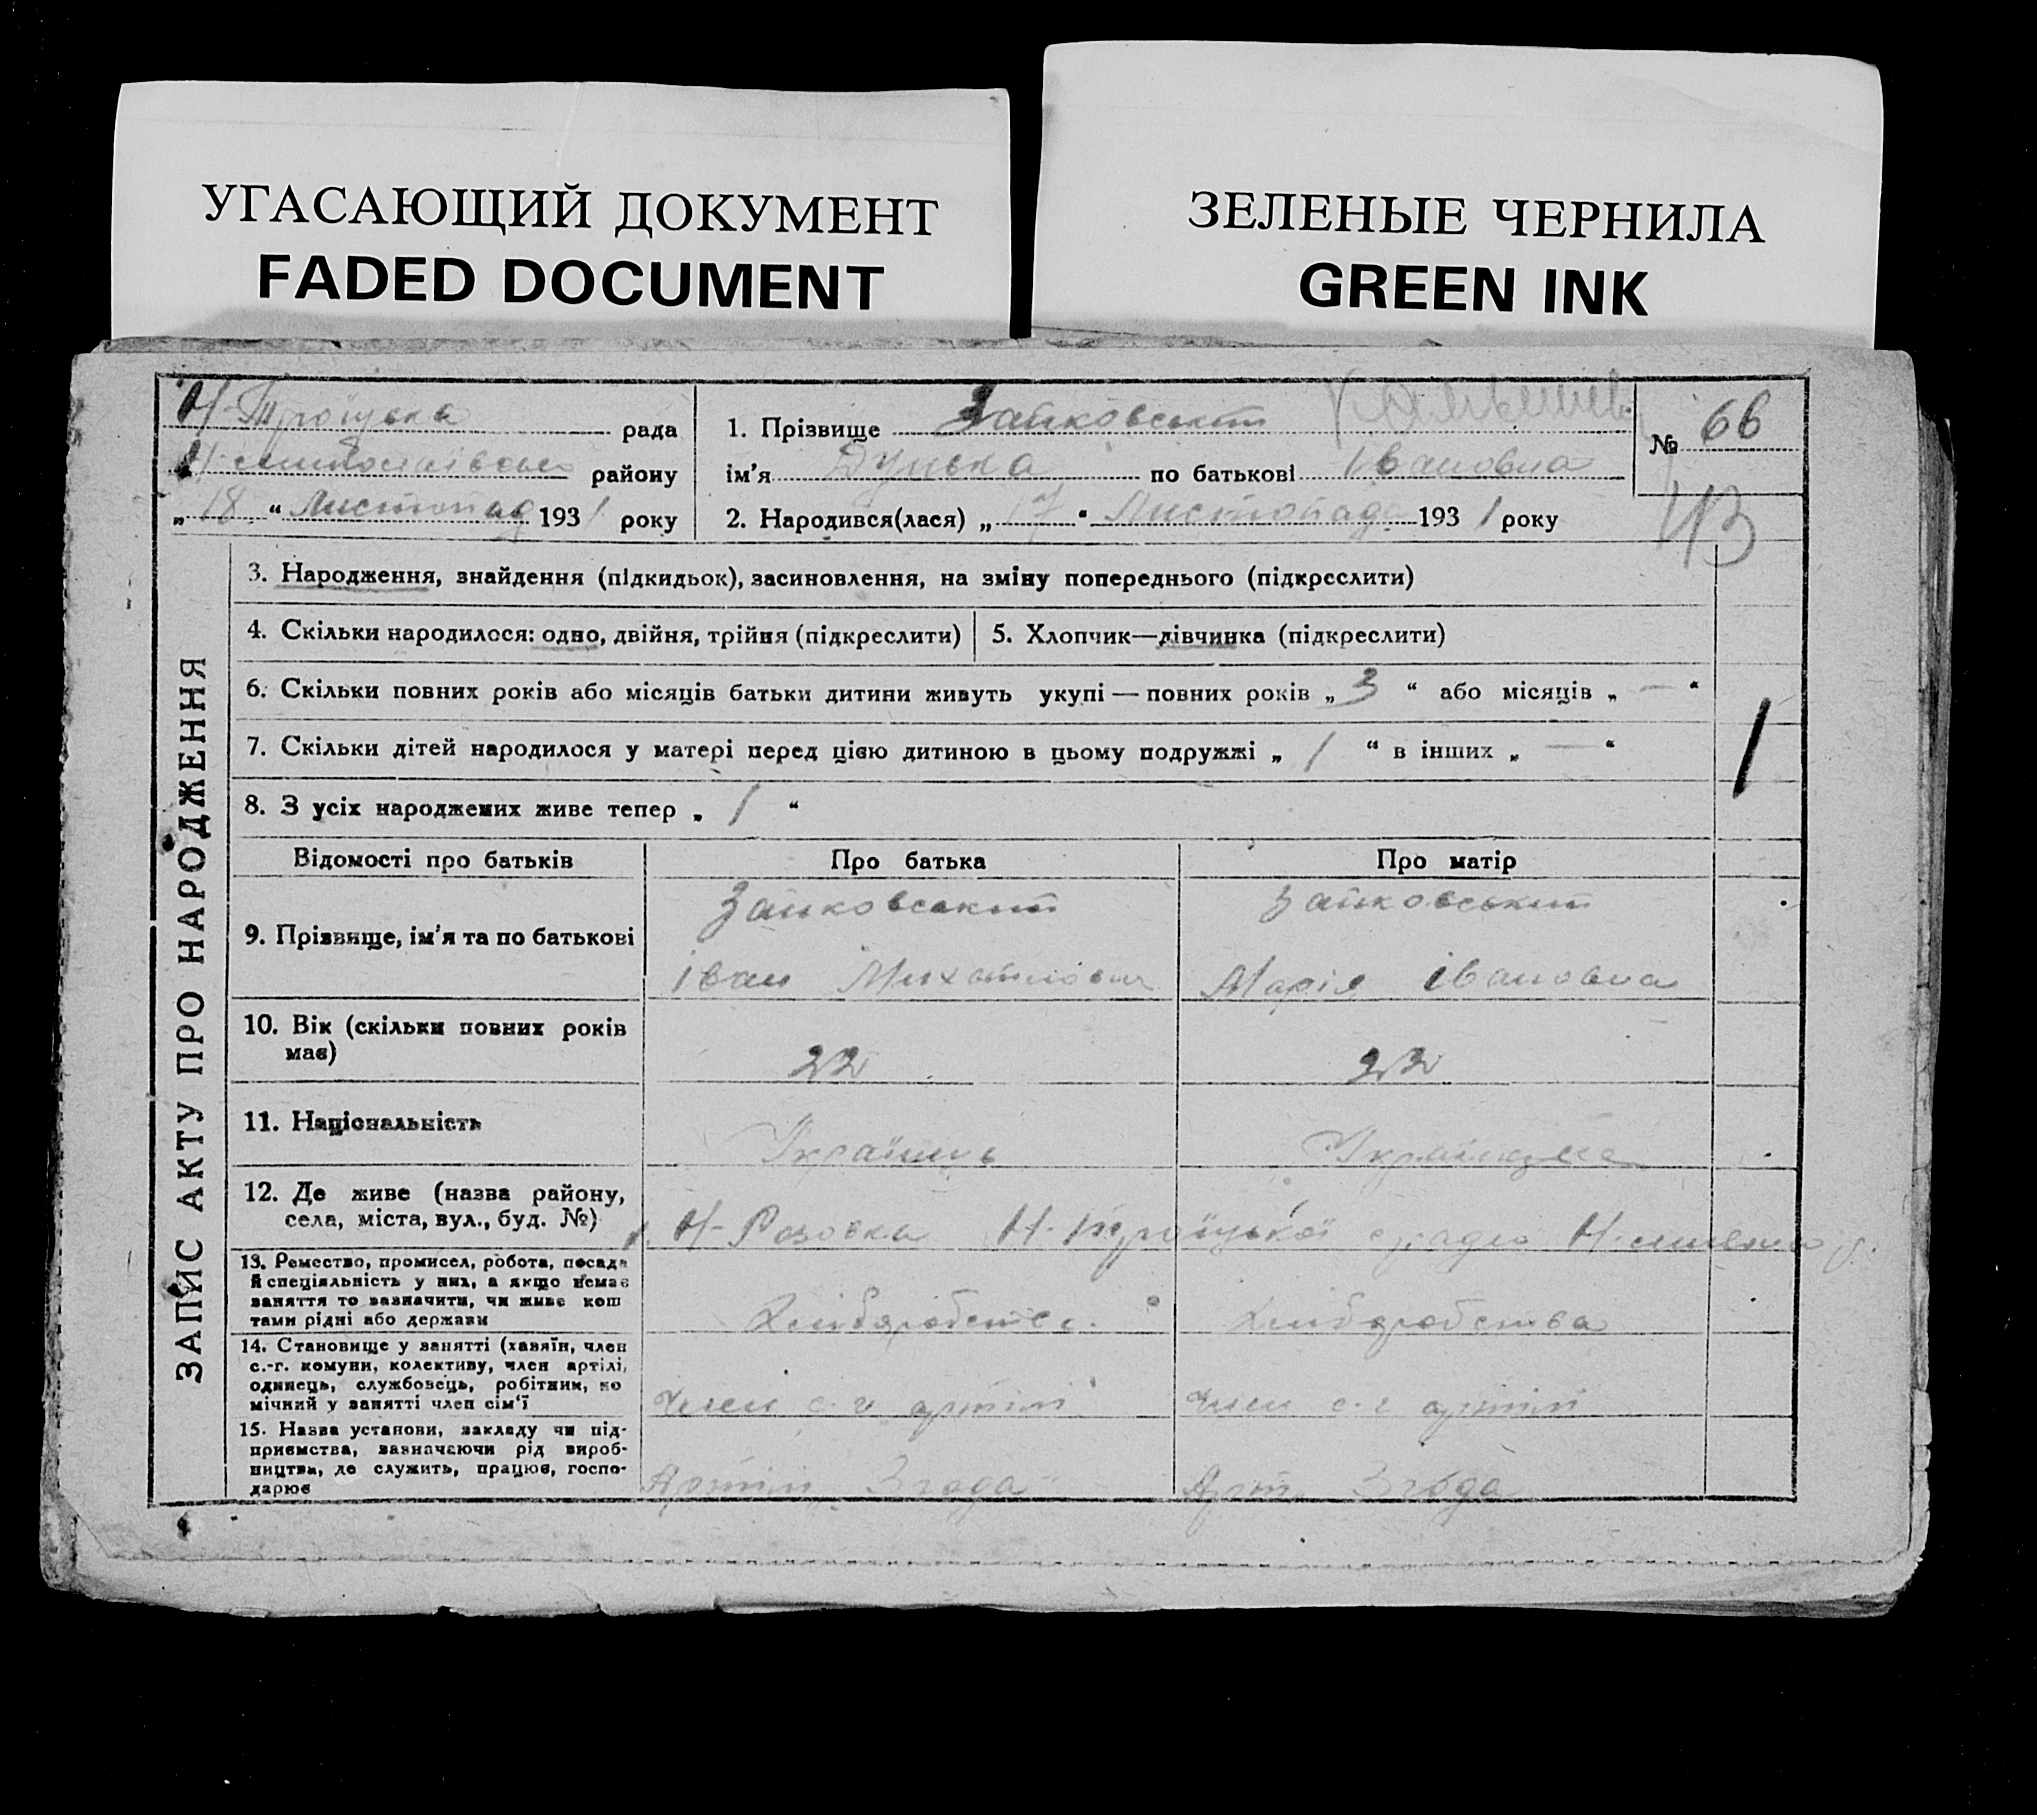 УГАСАЮЩИЙ ДОКУМЕНТ
FADED DOCUMENT
ЗЕЛЕНЫЕ ЧЕРНИЛА
GREEN INK
ЗАПИС АКТУ ПРО НАРОДЖЕННЯ
Н-Троїцька рада
району
„18“ Листопад 1931 року
1. Прізвище Зайковський
ім’я по батькові Івановна
2. Народився(лася) „17“ Листопада 1931 року
№ 66
43
3. Народження, знайдення (підкидьок), засиновлення, на зміну попереднього (підкреслити)
4. Скільки народилося: одно, двійня, трійня (підкреслити)
5. Хлопчик—дівчинка (підкреслити)
6. Скільки повних років або місяців батьки дитини живуть укупі — повних років „3“ або місяців „—“
7. Скільки дітей народилося у матері перед цією дитиною в цьому подружжі „1“ в інших „—“
8. З усіх народжених живе тепер „1“
Відомості про батьків Про батька Про матір
9. Прізвище, ім’я та по батькові
Зайковський
Іван Михайлович
Зайковський
Марія Івановна
10. Вік (скільки повних років
має)
22
22
11. Національність
Українець
Українка
12. Де живе (назва району,
села, міста, вул., буд. №)
Н-Розовка Н. Троїцької
13. Ремество, промисел, робота, посада
й спеціяльність у них, а якщо немає
заняття то зазначити, чи живе кош
тами рідні або держави
Хліборобство
Хліборобства
14. Становище у занятті (хазяїн, член
с.-г. комуни, колективу, член артілі,
одинець, службовець, робітник, по
мічний у занятті член сім’ї
Член с. г артіл
Член с. г артіл
15. Назва установи, закладу чи під-
приємства, зазначаючи рід вироб-
ництва, де служить, працює, госпо-
дарює
Артіл Згода
Арт. Згода